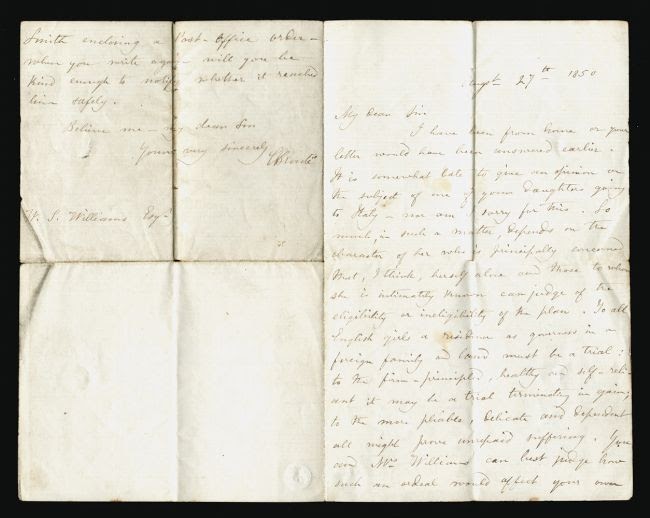 Augst 27th 1850
My Dear Sir
I have been from home or your
letter would have been answered earlier.
It is somewhat late to give an opinion on
the subject of one of your daughters going
to Italy - nor am I sorry for this. So
much, in such a matter, depends on the
character of her who is principally concerned
that, I think, herself alone and those to whom
she is intimately known can judge of the
eligibility or ineligibility of the plan. To all
English girls a residence as governess in a
foreign family and land must be a trial:
to the firm-principled, healthy and self-reli-
ant it may be a trial terminating in gain;
to the more pliable, delicate and dependent
all might prove unrepaid suffering. You
and Mrs Williams can best judge how
such an ordeal would affect your own
Smith enclosing a Post-Office order -
when you write again will you be
kind enough to notify whether it reached
him safely.
Believe me - my dear Sir
Yours very sincerely
CBrontë
W. S. Williams Esqr